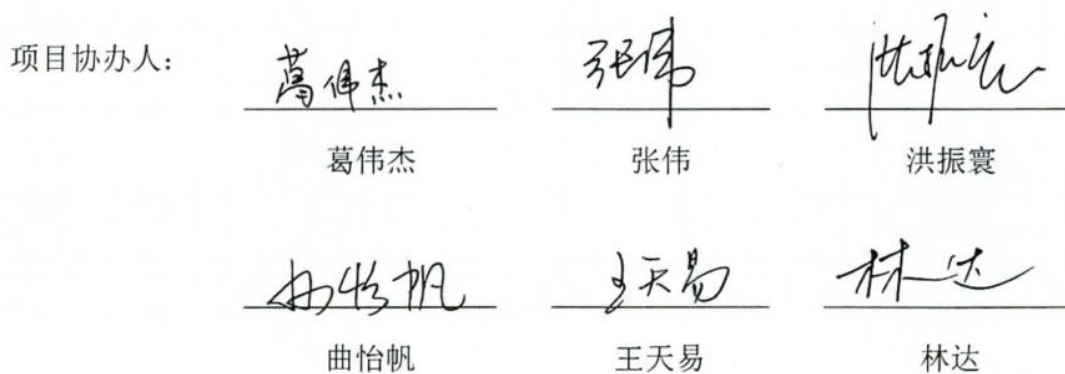 项目协办人：
葛伟杰 张伟 洪振寰
葛伟杰 张伟 洪振寰
曲怡帆 王天易 林达
曲怡帆 王天易 林达